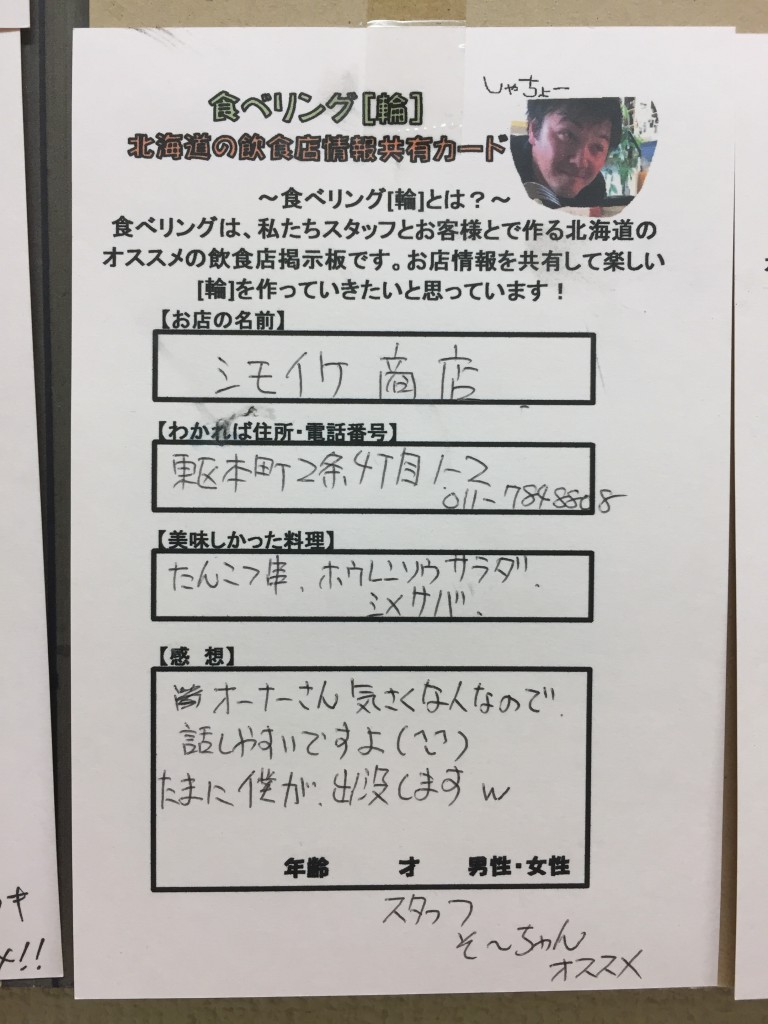 しゃちょー
食べリング[輪]
北海道の飲食店情報共有カード
～食べリング[輪]とは？～
食べリングは、私たちスタッフとお客様とで作る北海道の
オススメの飲食店掲示板です。お店情報を共有して楽しい
[輪]を作っていきたいと思っています！
【お店の名前】
シモイケ 商店
【わかれば住所・電話番号】
東区本町2条4丁目1-2
011-7848808
【美味しかった料理】
たんこつ串、ホウレンソウサラダ、
シメサバ、
【感 想】
オーナーさん 気さくな人なので、
話しやすいですよ(^^)
たまに僕が、出没します w
年齢 才 男性・女性
スタッフ
そ～ちゃん
オススメ
!!